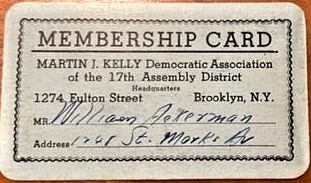 MEMBERSHIP CARD
MARTIN J. KELLY Democratic Association
of the 17th Assembly District
Headquarters
1274 Fulton Street Brooklyn, N.Y.
MR. William Ackerman
Address St. Marks Av